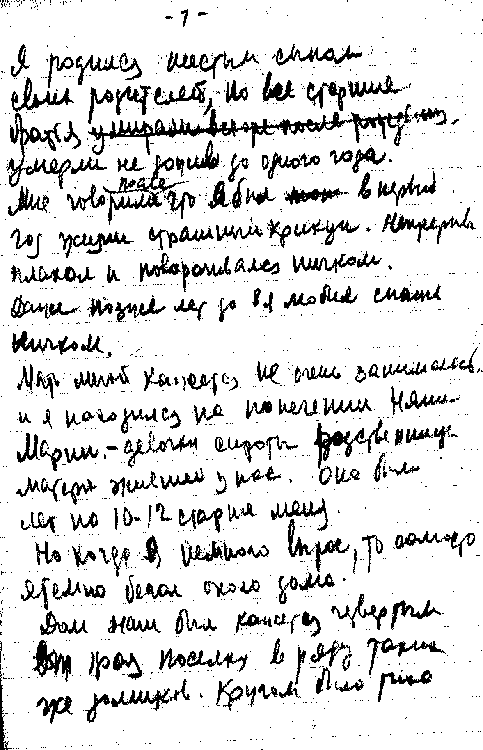 - 7 -
Я родился шестым сыном
своих родителей, но все старшие
братья умирали вскоре после рождения.
умерли не дожив до одного года.
после
Мне говорили что я был в первый
год жизни страшный крикун. Непрерывно
плакал и поворачивался ничком.
Даже позже лет до 8 я любил спать
ничком.
Мать мной кажется не очень занималась.
и я находился на попечении няни
Марии. - девочки сироты родственницы
матери жившей у нас. Она была
лет на 10-12 старше меня.
Но когда я немного вырос, то
я бегал около дома.
Дом наш был кажется четвертым
поселку в ряду таких
же домиков. Кругом было